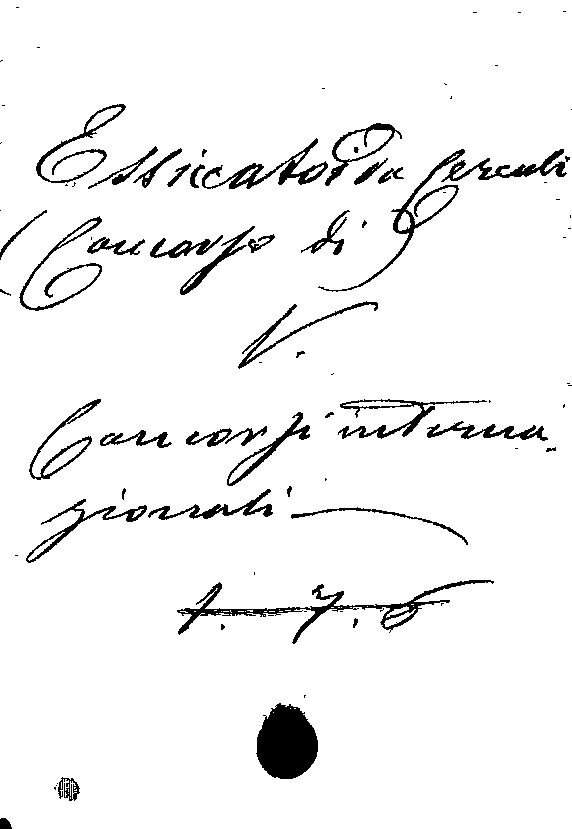 Essicatoi da Cereali
(Concorso di
V.
Concorsi interna
zionali
1. 7. 6